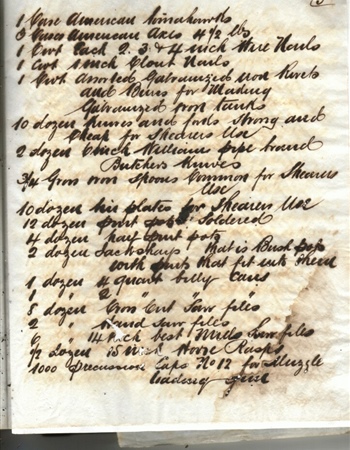 1 Case American
3 Cases American Axes 4 1/2 lbs
1 Cwt Each 2. 3 & 4 inch Wire Nails
1 Cwt 1 inch Clout Nails
1 Cwt Assorted Galvanized iron Rivets
and for Making
Galvanized iron tanks
10 dozen Knives and forks Strong and
Cheap for Shearers Use
2 dozen 6 inch William pipe brand
Butchers Knives
3/4 Gross iron Spoons Common for Shearers
Use
10 dozen tin plates for Shearers Use
12 dozen pint pots Soldered
4 dozen half pint pots
2 dozen that is Bush pots
with pints that fit into them
1 dozen 4 quart billy Cans
1 " 2 "
5 dozen Cross Cut Saw files
2 " Saw files
6 " 14 inch best Mills Saw files
1/2 dozen 15 inch Horse Rasps
1000 Percussion Caps No 12 for Muzzle
loading